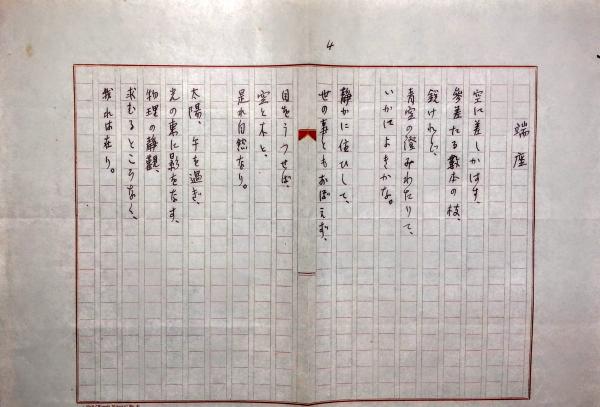 4
端座
空に差しかはす、
参差たる数本の枝、
鋭けれど、
青空の澄みわたりて、
いかはよきかな。
静かに住ひして、
世の事ともおぼえず、
目をうつせば、
空と木と、
是れ自然なり。
太陽、午を過ぎ、
光の東に影をなす、
物理の静観、
求むるところなく、
我れは在り。